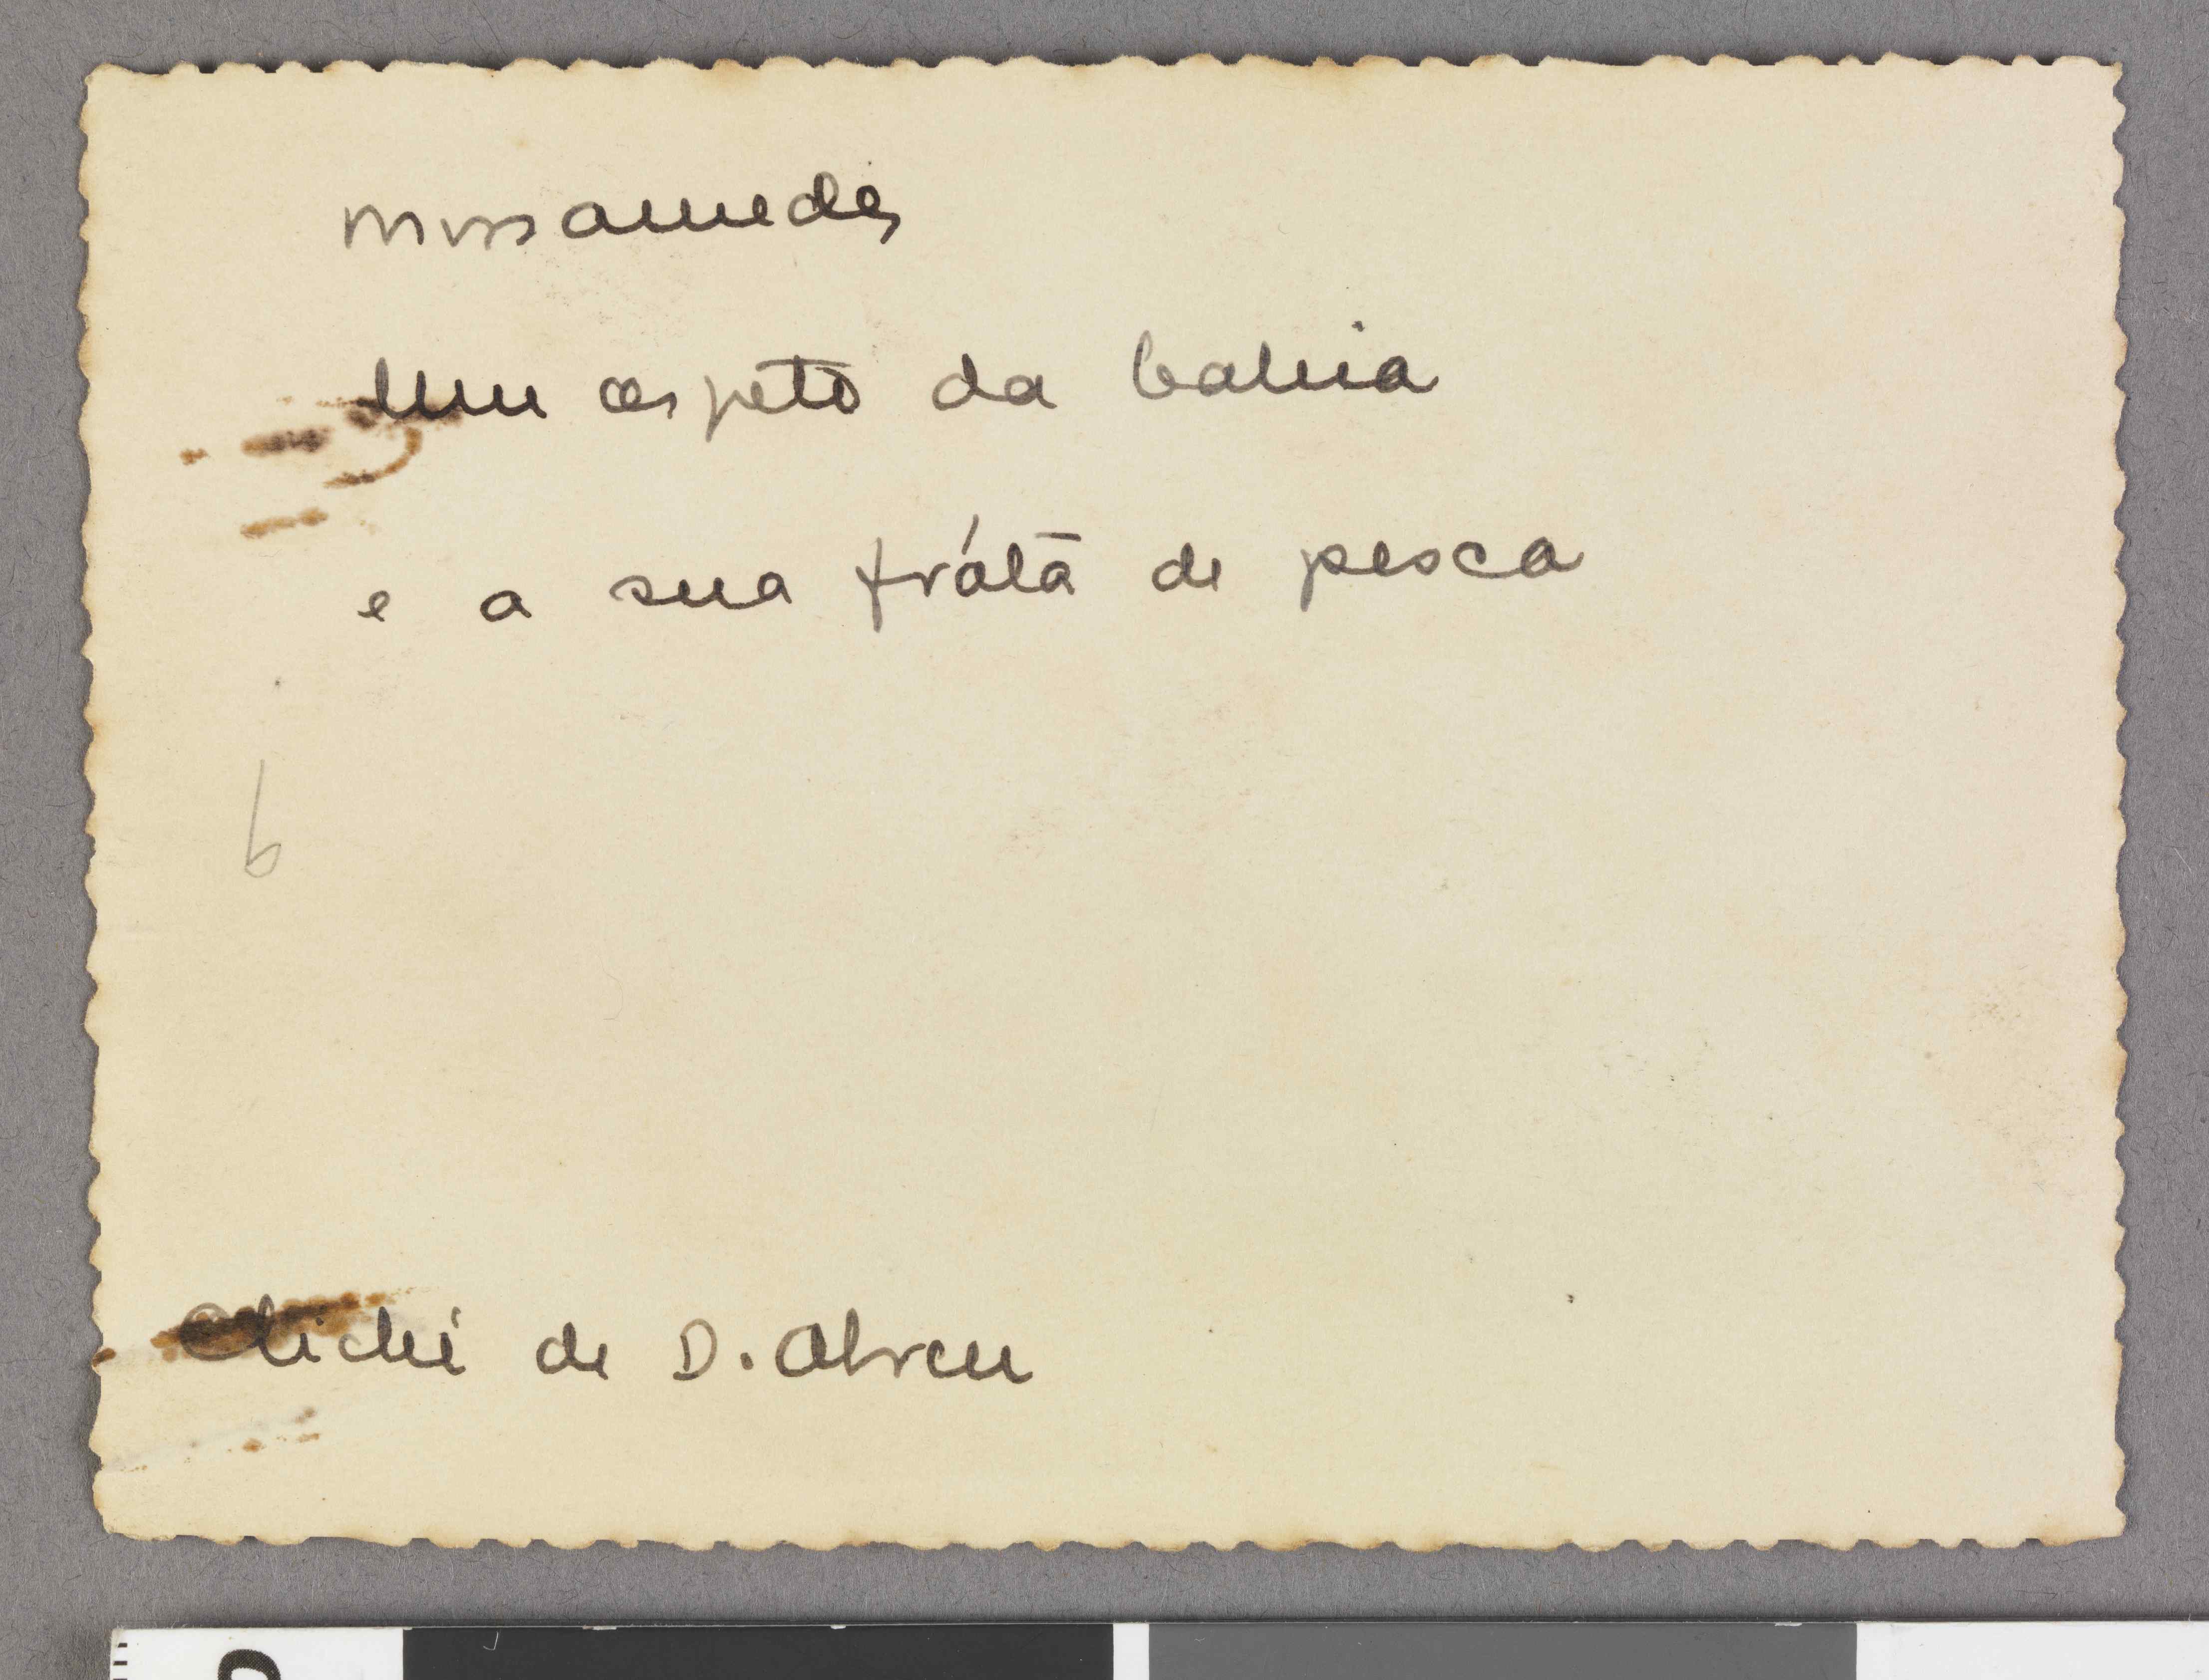 Mossamedes
Um aspeto da bahia
e a sua fróta de pesca
6
Cliché de D. Abreu